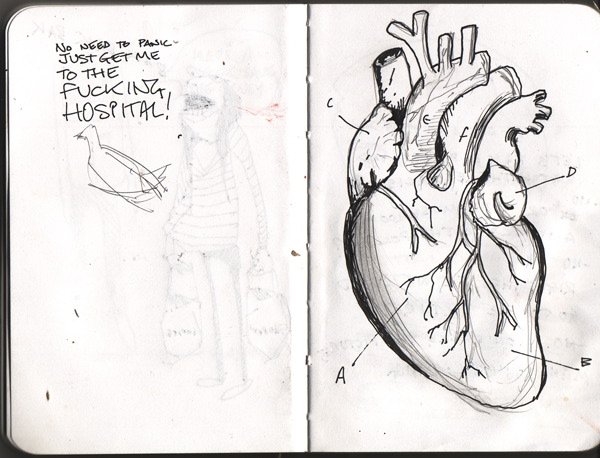 NO NEED TO PANIC-
JUST GET ME
TO THE
FUCKING
HOSPITAL!
C
E
F
D
A
B